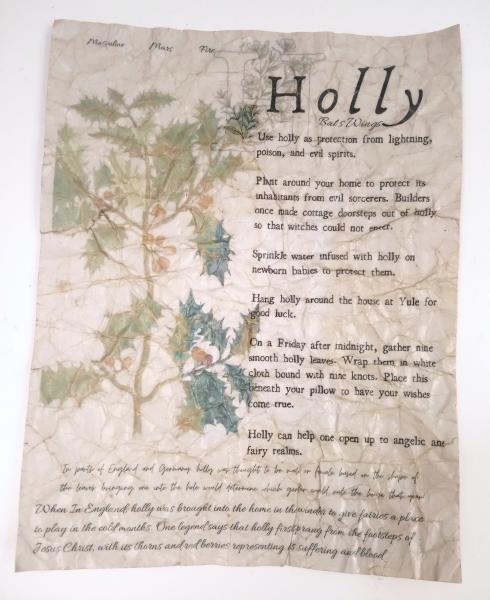 Masculine Mars Fire
Holly
Bat's Wings
Use holly as protection from lightning,
poison, and evil spirits.
Plant around your home to protect its
inhabitants from evil sorcerers. Builders
once made cottage doorsteps out of holly
so that witches could not enter.
Sprinkle water infused with holly on
newborn babies to protect them.
Hang holly around the house at Yule for
good luck.
On a Friday after midnight, gather nine
smooth holly leaves. Wrap them in white
cloth bound with nine knots. Place this
beneath your pillow to have your wishes
come true.
Holly can help one open up to angelic and
fairy realms.
In parts of England and Germany holly was thought to be male or female based on the shape of
the leaves bringing one into the home would determine which gender would rule the house that year
When In England holly was brought into the home in the winter to give fairies a place
to play in the cold months. One legend says that holly first sprang from the footsteps of
Jesus Christ, with its thorns and red berries representing is suffering and blood